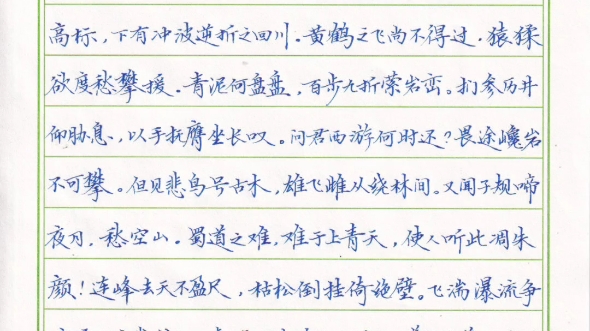 高标，下有冲波逆折之回川。黄鹤之飞尚不得过，猿猱
欲度愁攀援。青泥何盘盘，百步九折萦岩峦。扪参历井
仰胁息，以手抚膺坐长叹。问君西游何时还？畏途巉岩
不可攀。但见悲鸟号古木，雄飞雌从绕林间。又闻子规啼
夜月，愁空山。蜀道之难，难于上青天，使人听此凋朱
颜！连峰去天不盈尺，枯松倒挂倚绝壁。飞湍瀑流争